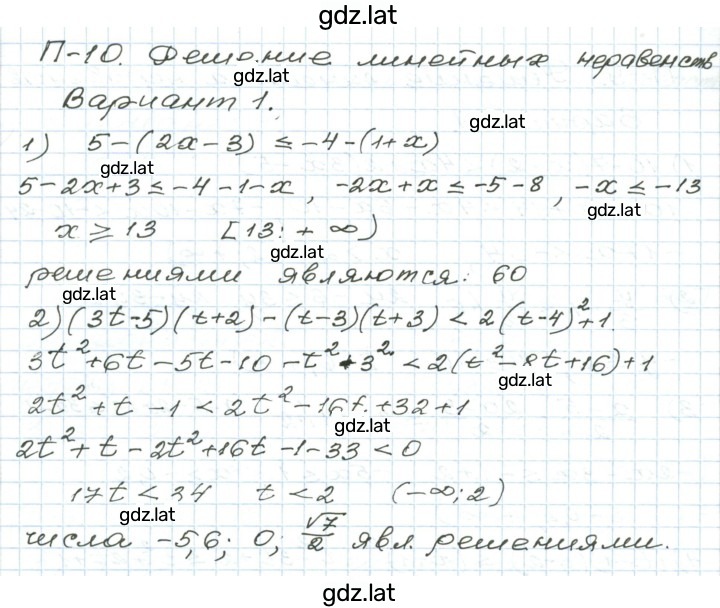 gdz.lat
П-10. Решение линейных неравенств
gdz.lat
Вариант 1.
gdz.lat
1) 5-(2x-3) ≤ -4-(1+x)
gdz.lat
5-2x+3 ≤ -4-1-x, -2x+x ≤ -5-8, -x ≤ -13
gdz.lat
x ≥ 13 [13; +∞)
gdz.lat
решениями являются: 60
gdz.lat
2) (3t-5)(t+2)-(t-3)(t+3) < 2(t-4)²+1
3t²+6t-5t-10-t²+3² < 2(t²-8t+16)+1
gdz.lat
2t²+t-1 < 2t²-16t+32+1
gdz.lat
2t²+t-2t²+16t-1-33 < 0
17t < 34 t < 2 (-∞; 2)
gdz.lat
числа -5,6; 0; √7/2 явл. решениями.
gdz.lat